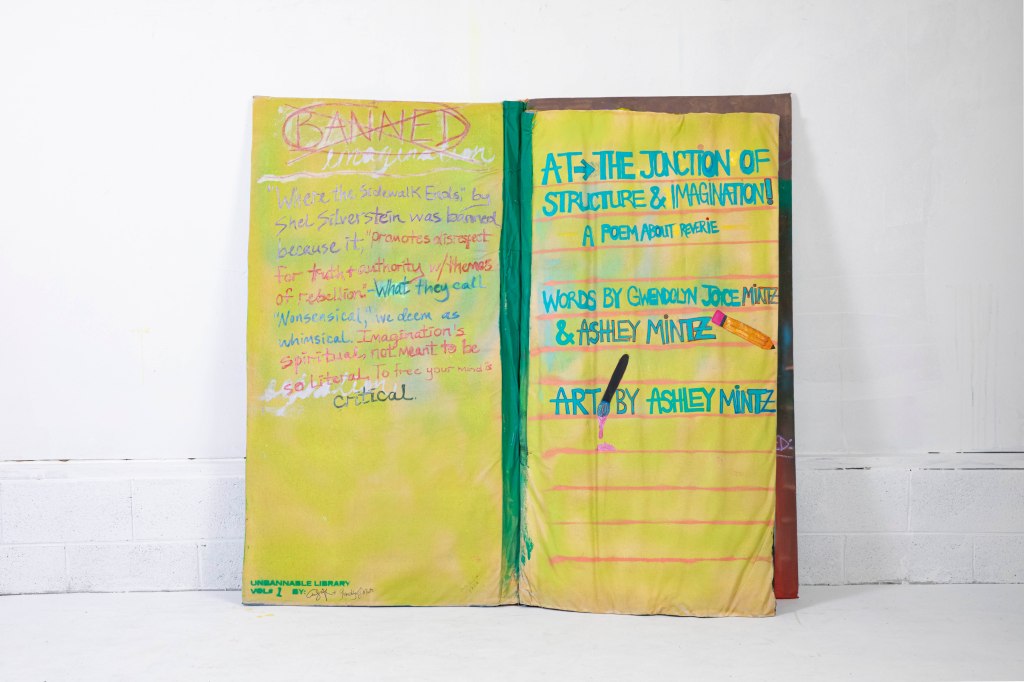 BANNED
imagination
"Where the Sidewalk Ends," by
Shel Silverstein was banned
because it, "Promotes disrespect
for truth + authority w/themes
of rebellion" - What they call
"Nonsensical," we deem as
whimsical. Imagination's
spiritual, not meant to be
so literal. To free your mind is
critical.
UNBANNABLE LIBRARY
VOL# 1 BY:
AT → THE JUNCTION OF
STRUCTURE & IMAGINATION!
A POEM ABOUT REVERIE
WORDS BY GWENDOLYN JOYCE MINTZ
& ASHLEY MINTZ
ART BY ASHLEY MINTZ